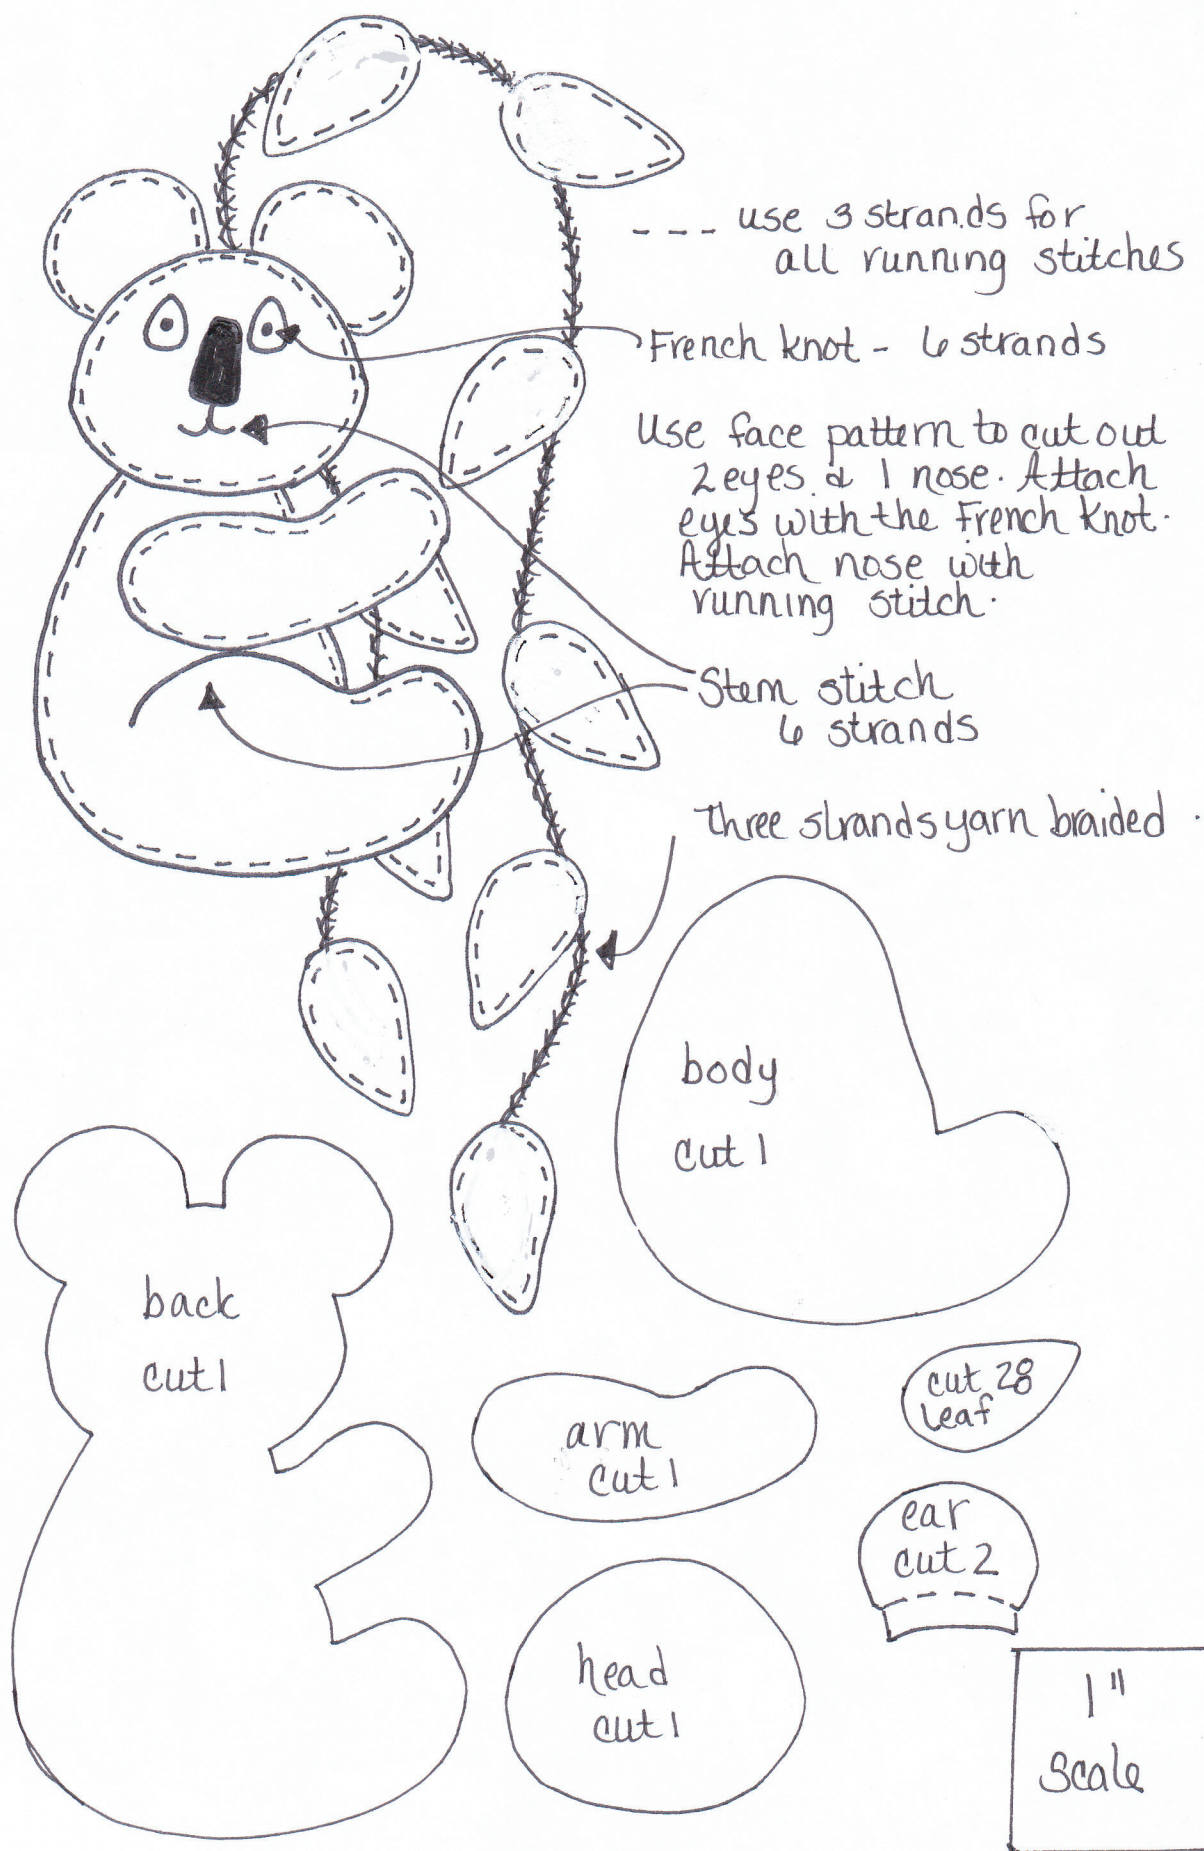 --- use 3 strands for
all running stitches
French knot - 6 strands
Use face pattern to cut out
2 eyes & 1 nose. Attach
eyes with the French knot.
Attach nose with
running stitch.
Stem stitch
6 strands
three strands yarn braided
body
cut 1
back
cut 1
arm
cut 1
cut 28
leaf
ear
cut 2
head
cut 1
1"
Scale